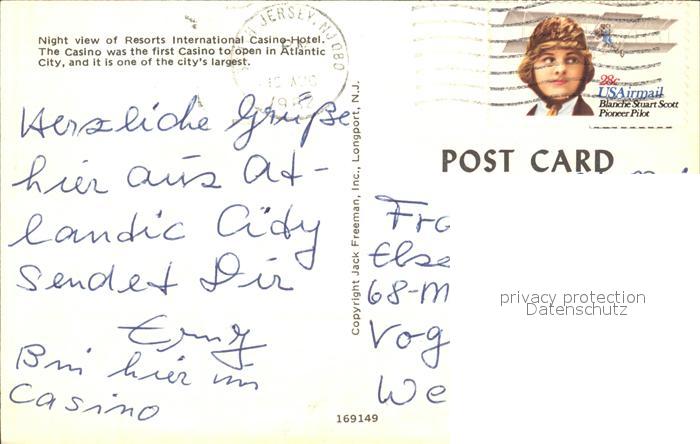 Night view of Resorts International Casino-Hotel.
The Casino was the first Casino to open in Atlantic
City, and it is one of the city's largest.
JERSEY, NJ 080
AUG
28c
USAirmail
Blanche Stuart Scott
Pioneer Pilot
POST CARD
Herzliche Grüße
hier aus At-
landic Cidy
Sendet Dir
Ernz
Bni hier im
Casino
Copyright Jack Freeman, Inc., Longport, N.J.
Fra
Else
68-M
Vog
We
privacy protection
Datenschutz
169149